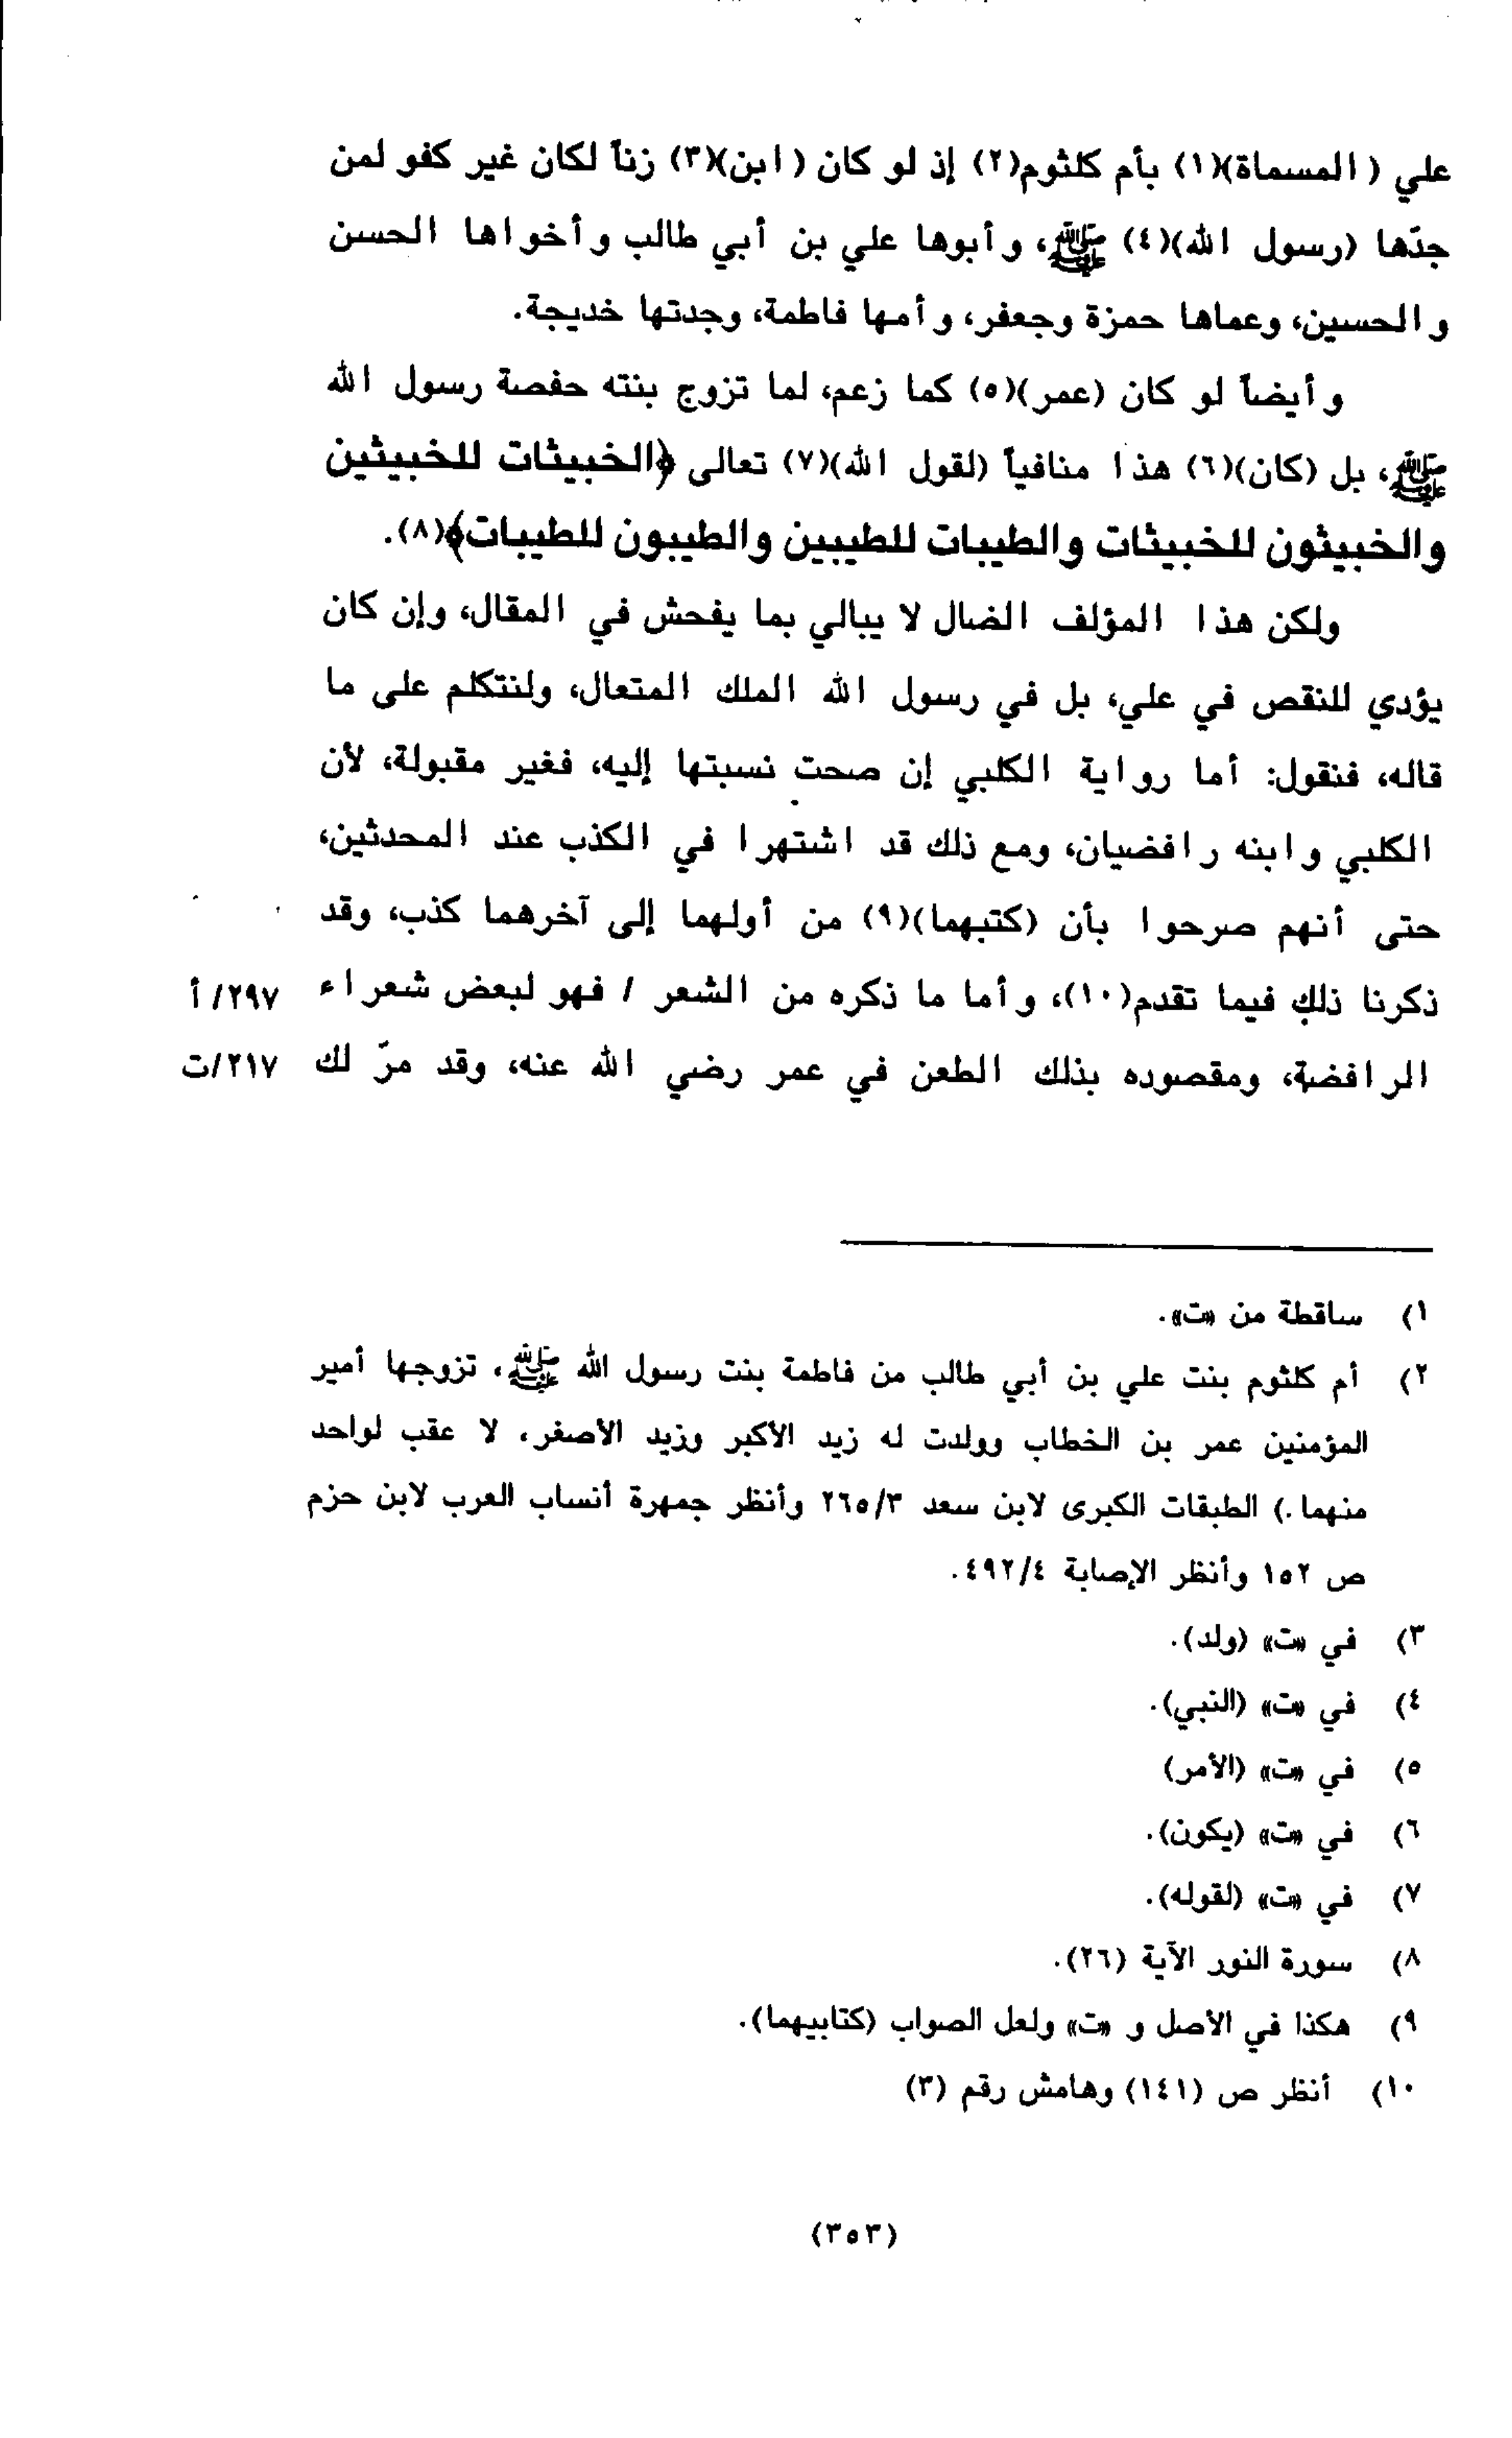 علي (المسماة)(١) بأم كلثوم(٢) إذ لو كان (ابن)(٣) زناً لكان غير كفو لمن
جدّها (رسول الله)(٤) ﷺ، وأبوها علي بن أبي طالب وأخواها الحسن
والحسين، وعماها حمزة وجعفر، وأمها فاطمة، وجدتها خديجة.
وأيضاً لو كان (عمر)(٥) كما زعم، لما تزوج بنته حفصة رسول الله
ﷺ، بل (كان)(٦) هذا منافياً (لقول الله)(٧) تعالى ﴿الخبيثات للخبيثين
والخبيثون للخبيثات والطيبات للطيبين والطيبون للطيبات﴾(٨).
ولكن هذا المؤلف الضال لا يبالي بما يفحش في المقال، وإن كان
يؤدي للنقص في علي، بل في رسول الله الملك المتعال، ولنتكلم على ما
قاله، فنقول: أما رواية الكلبي إن صحت نسبتها إليه، فغير مقبولة، لأن
الكلبي وابنه رافضيان، ومع ذلك قد اشتهرا في الكذب عند المحدثين،
حتى أنهم صرحوا بأن (كتبهما)(٩) من أولهما إلى آخرهما كذب، وقد
ذكرنا ذلك فيما تقدم(١٠)، وأما ما ذكره من الشعر / فهو لبعض شعراء ٢٩٧/أ
الرافضة، ومقصوده بذلك الطعن في عمر رضي الله عنه، وقد مرّ لك ٢١٧/ت
١) ساقطة من «ت».
٢) أم كلثوم بنت علي بن أبي طالب من فاطمة بنت رسول الله ﷺ، تزوجها أمير
المؤمنين عمر بن الخطاب وولدت له زيد الأكبر وزيد الأصغر، لا عقب لواحد
منهما.) الطبقات الكبرى لابن سعد ٢٦٥/٣ وأنظر جمهرة أنساب العرب لابن حزم
ص ١٥٢ وأنظر الإصابة ٤٩٢/٤.
٣) في «ت» (ولد).
٤) في «ت» (النبي).
٥) في «ت» (الأمر)
٦) في «ت» (يكون).
٧) في «ت» (لقوله).
٨) سورة النور الآية (٢٦).
٩) هكذا في الأصل و «ت» ولعل الصواب (كتابيهما).
١٠) أنظر ص (١٤١) وهامش رقم (٣)
(٣٥٣)